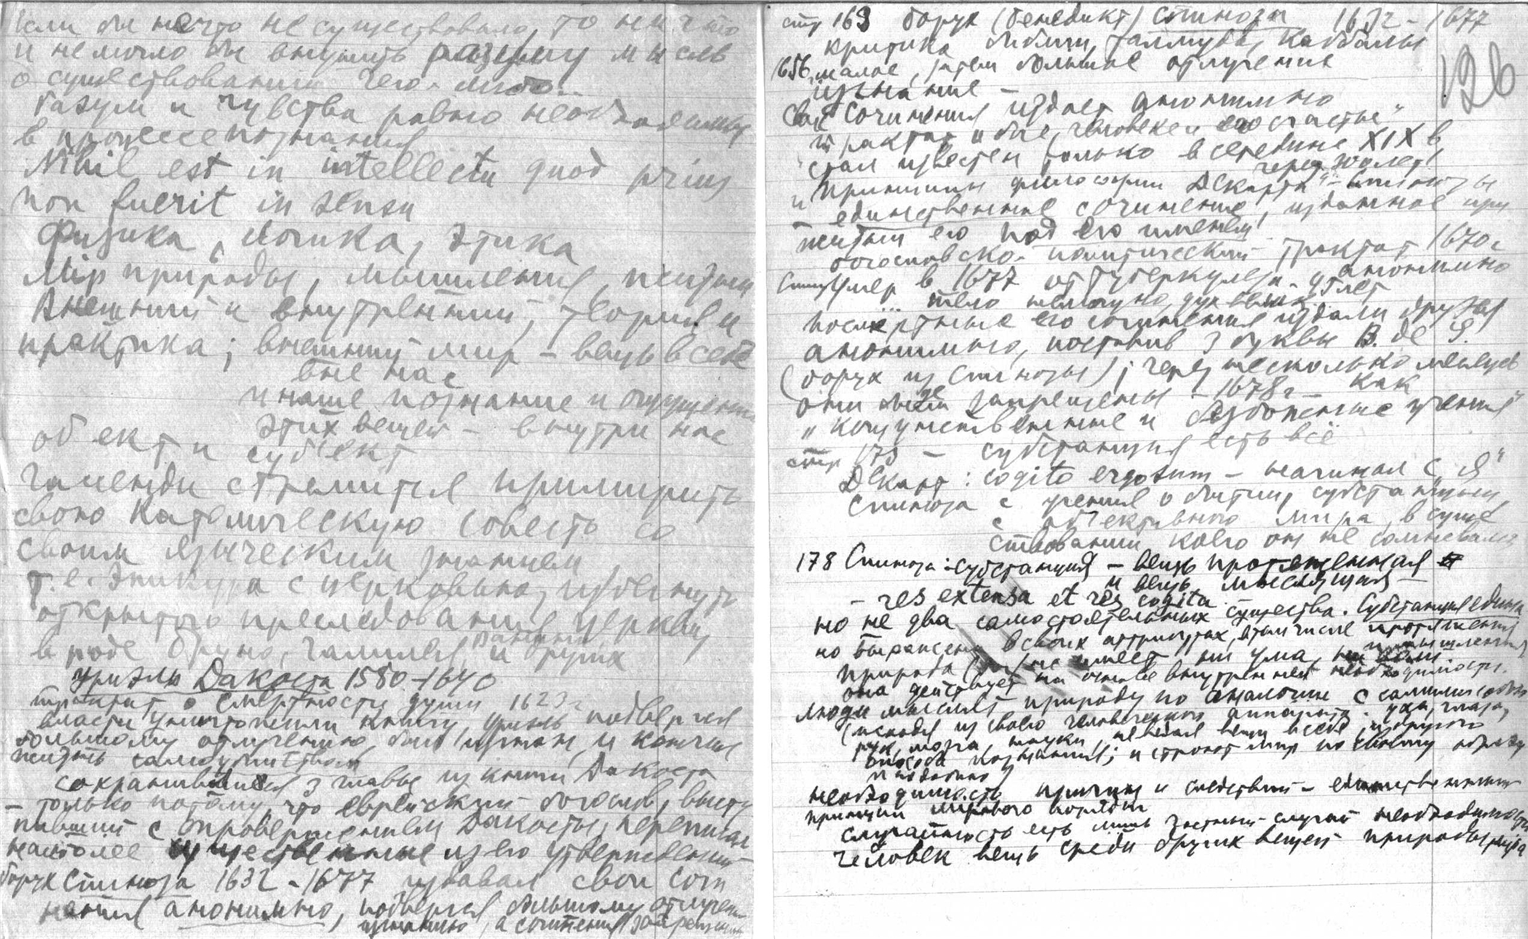 Если бы нечто не существовало, то ничто
и не могло бы внушить разуму мысль
о существовании чего-либо.
Разум и чувства равно необходимы
в процессе познания
Nihil est in intellectu quod prius
non fuerit in sensu
Физика, логика, этика
Мiр природы, мышления, психики
Внешний и внутренний, теория и
практика; внешний мир – вещь в себе
вне нас
и наше познание и ощущение
этих вещей – внутри нас
объект и субъект
Гассенди стремится примирить
свою католическую совесть со
своим языческим знанием
т.е. Эпикура с церковью, избегнуть
открытого преследования церкви
вроде Бруно, Галилея и других
Уриэль Дакоста 1580–1640
трактат о смертности души 1623г
власти уничтожили книгу, подвергся
большому отлучению, был изгнан и кончил
жизнь самоубийством
Сохранившиеся 3 главы из книги Дакоста
– только потому, что еврейский богослов, высту
пивший с опровержением Дакосты, переписал
наиболее существенные из его утверждений
Борух Спиноза 1632–1677 издавал свои сочи
нения анонимно, подвергся большому отлучен
изгнанию, а сочинения запрещению
стр 163 Борух (Бенедикт) Спиноза 1632–1677
126
критика библии, талмуда, каббалы
1656 малое, затем большое отлучение
изгнание –
Свои сочинения издает анонимно
Трактат о боге, человеке и его счастье"
стал известен только в середине XIX в,
через 200 лет
и "Принципы философии Декарта" – Спинозы
– единственное сочинение, изданное при
жизни его под его именем
Богословско-политический трактат 1670г
анонимно
Умер в 1677 от туберкулеза
Посмертные его сочинения издали друзья
анонимно, поставив 3 буквы B. de S.
(Борух из Спинозы); через несколько месяцев
они были запрещены – 1678г – как
"кощунственные и безбожные учения"
стр 175 – субстанция есть всё
Декарт: cogito ergo sum – начинал с "Я"
Спиноза с учения о бытии, субстанции,
с объективного мира, в суще
ствовании коего он не сомневался
178 Спиноза: субстанция – вещь протяженная
и вещь мыслящая –
– res extensa et res cogita
но не два самостоятельных существа. Субстанция едина
но выражена в своих аттрибутах, в том числе протяжения
и мышления
Природа не имеет ни ума ни воли
она действует на основе внутренней необходимости.
люди мыслят природу по аналогии с самими собой
(исходя из своего человеческого аппарата: уха, глаза,
рук, мозга, науки, не видя вещи в себе, и другого
способа познания; и строят мир по своему образу
и подобию)
необходимость причин и следствий – единственный
принцип мирового порядка
случайность есть лишь частный случай необходимости
человек вещь среди других вещей природы, мира